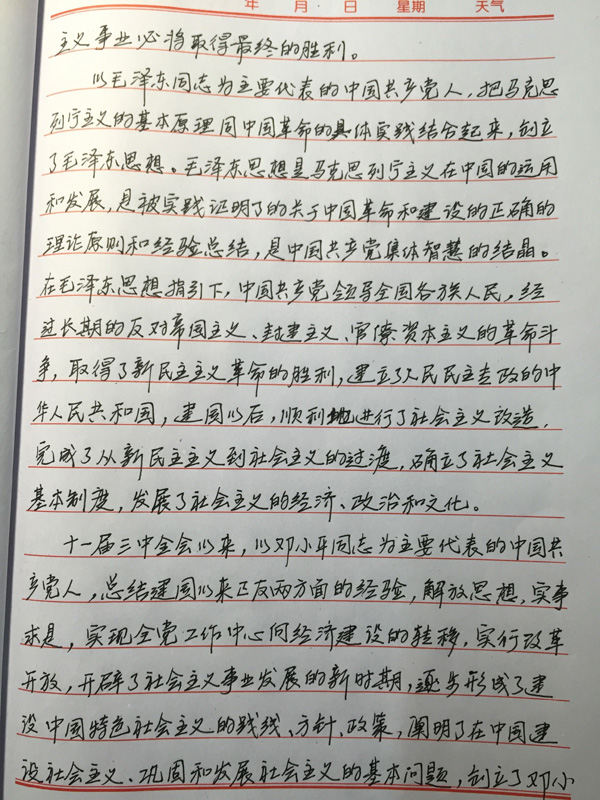 年 月 日 星期 天气
主义事业必将取得最终的胜利。
以毛泽东同志为主要代表的中国共产党人，把马克思
列宁主义的基本原理同中国革命的具体实践结合起来，创立
了毛泽东思想。毛泽东思想是马克思列宁主义在中国的运用
和发展，是被实践证明了的关于中国革命和建设的正确的
理论原则和经验总结，是中国共产党集体智慧的结晶。
在毛泽东思想指引下，中国共产党领导全国各族人民，经
过长期的反对帝国主义、封建主义、官僚资本主义的革命斗
争，取得了新民主主义革命的胜利，建立了人民民主专政的中
华人民共和国，建国以后，顺利地进行了社会主义改造，
完成了从新民主主义到社会主义的过渡，确立了社会主义
基本制度，发展了社会主义的经济、政治和文化。
十一届三中全会以来，以邓小平同志为主要代表的中国共
产党人，总结建国以来正反两方面的经验，解放思想，实事
求是，实现全党工作中心向经济建设的转移，实行改革
开放，开辟了社会主义事业发展的新时期，逐步形成了建
设中国特色社会主义的践线、方针、政策，阐明了在中国建
设社会主义、巩固和发展社会主义的基本问题，创立了邓小